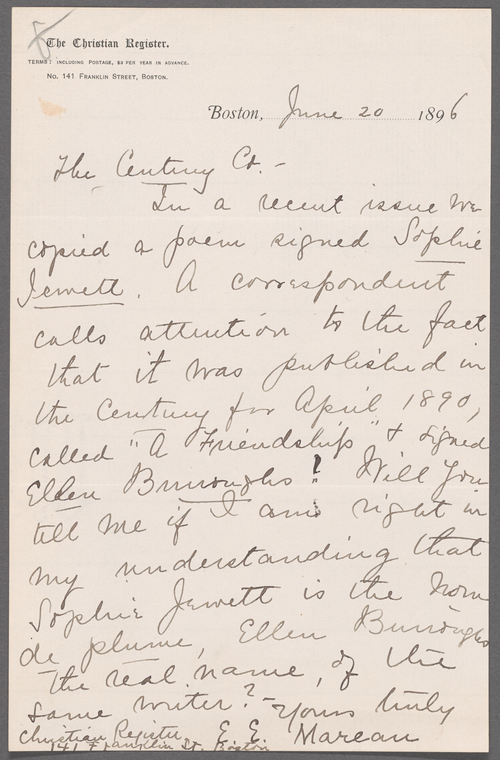 The Christian Register.
TERMS: INCLUDING POSTAGE, $3 PER YEAR IN ADVANCE.
No. 141 FRANKLIN STREET, BOSTON.
Boston, June 20 1896
The Century Co. -
In a recent issue we
copied a poem signed Sophie
Jewett. A correspondent
calls attention to the fact
that it was published in
the Century for April 1890,
called "A Friendship" & signed
Ellen Burroughs! Will you
tell me if I am right in
my understanding that
Sophie Jewett is the nom
de plume, Ellen Burroughs
the real name, of the
same writer? - Yours truly
Christian Register, E. E. Marean
141 Franklin St. Boston